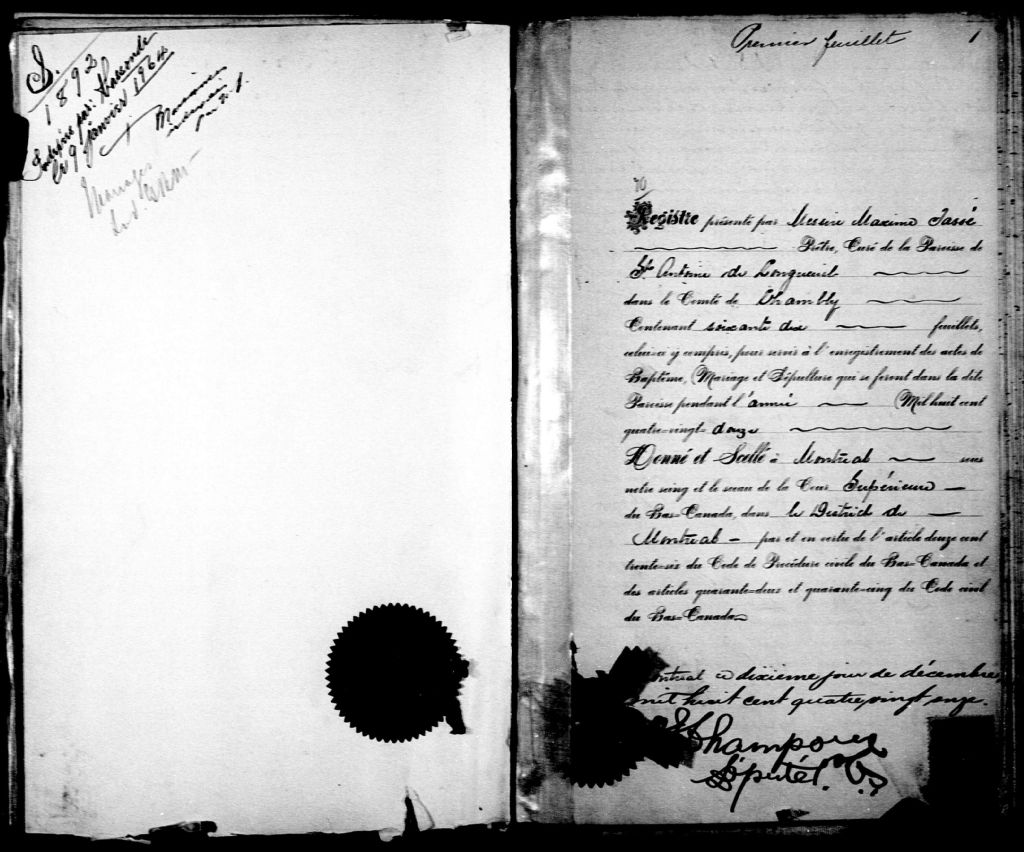 S.
1892
le 9 janvier 1964
Mariages
Premier feuillet
1
70
Registre présenté par Messire Maxime Tassé
Prêtre, Curé de la Paroisse de
St Antoine de Longueuil
dans le Comté de Chambly
Contenant soixante dix feuillets,
celui-ci y compris, pour servir à l'enregistrement des actes de
Baptême, Mariage et Sépulture qui se feront dans la dite
Paroisse pendant l'année Mil huit cent
quatre-vingt-douze
Donné et Scellé à Montréal sous
notre seing et le sceau de la Cour Supérieure
du Bas-Canada, dans le District de
Montréal - par et en vertu de l'article douze cent
trente-six du Code de Procédure civile du Bas-Canada et
des articles quarante-deux et quarante-cinq du Code civil
du Bas-Canada
Montréal ce dixieme jour de décembre
mil huit cent quatre vingt onze.
Champoux
Député P.C.S.